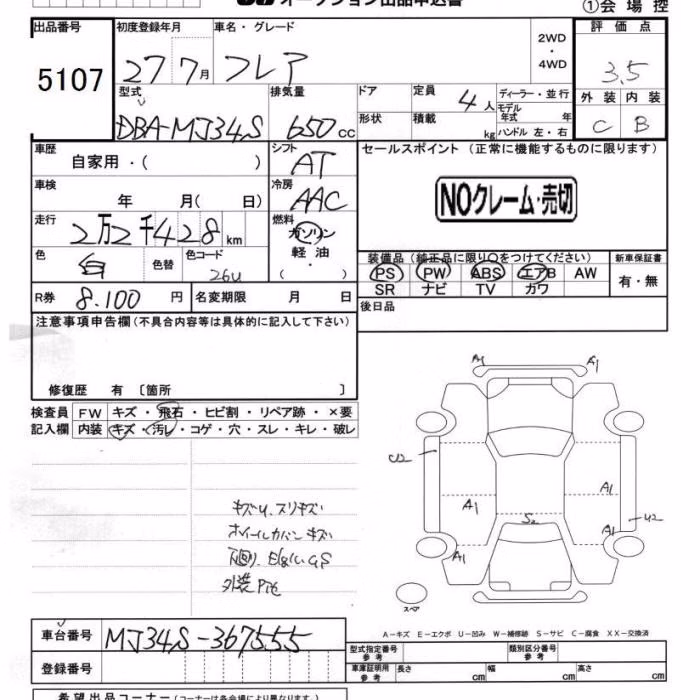 オークション出品申込書 ①会場控
出品番号 初度登録年月 車名・グレード 評価点
5107 27 7月 フレア 2WD・4WD 3.5
型式 排気量 ドア 定員 ディーラー・並行 外装 内装
DBA-MJ34S 650cc 4人 モデル年式 年 C B
形状 積載 kg ハンドル 左・右
車歴 シフト セールスポイント（正常に機能するものに限ります）
自家用・( ) AT
車検 冷房 NOクレーム・売切
年 月( 日) AAC
走行 燃料
2万2千428km ガソリン
軽油
・( )
色 色替 色コード 装備品（純正品に限り○をつけてください） 新車保証書
白 26U PS PW ABS エアB AW 有・無
SR ナビ TV カワ
R券 8.100円 名変期限 月 日 後日品
注意事項申告欄（不具合内容等は具体的に記入して下さい）
修復歴 有〔箇所 〕
検査員 FW キズ・飛石・ヒビ割・リペア跡・×要
記入欄 内装 キズ・汚レ・コゲ・穴・スレ・キレ・破レ
A1 A1
U2
A1 A1
S2 A1 U2
A1
キズU.スリキズ
ホイールカバーキズ
下廻り
外装
スペア
A-キズ E-エクボ U-凹み W-補修跡 S-サビ C-腐食 XX-交換済
車台番号 MJ34S-367555
型式指定番号 参考 類別区分番号 参考
登録番号 車庫証明用 参考 長さ cm 幅 cm 高さ cm
希望出品コーナー（コーナーは各会場により異なります。）